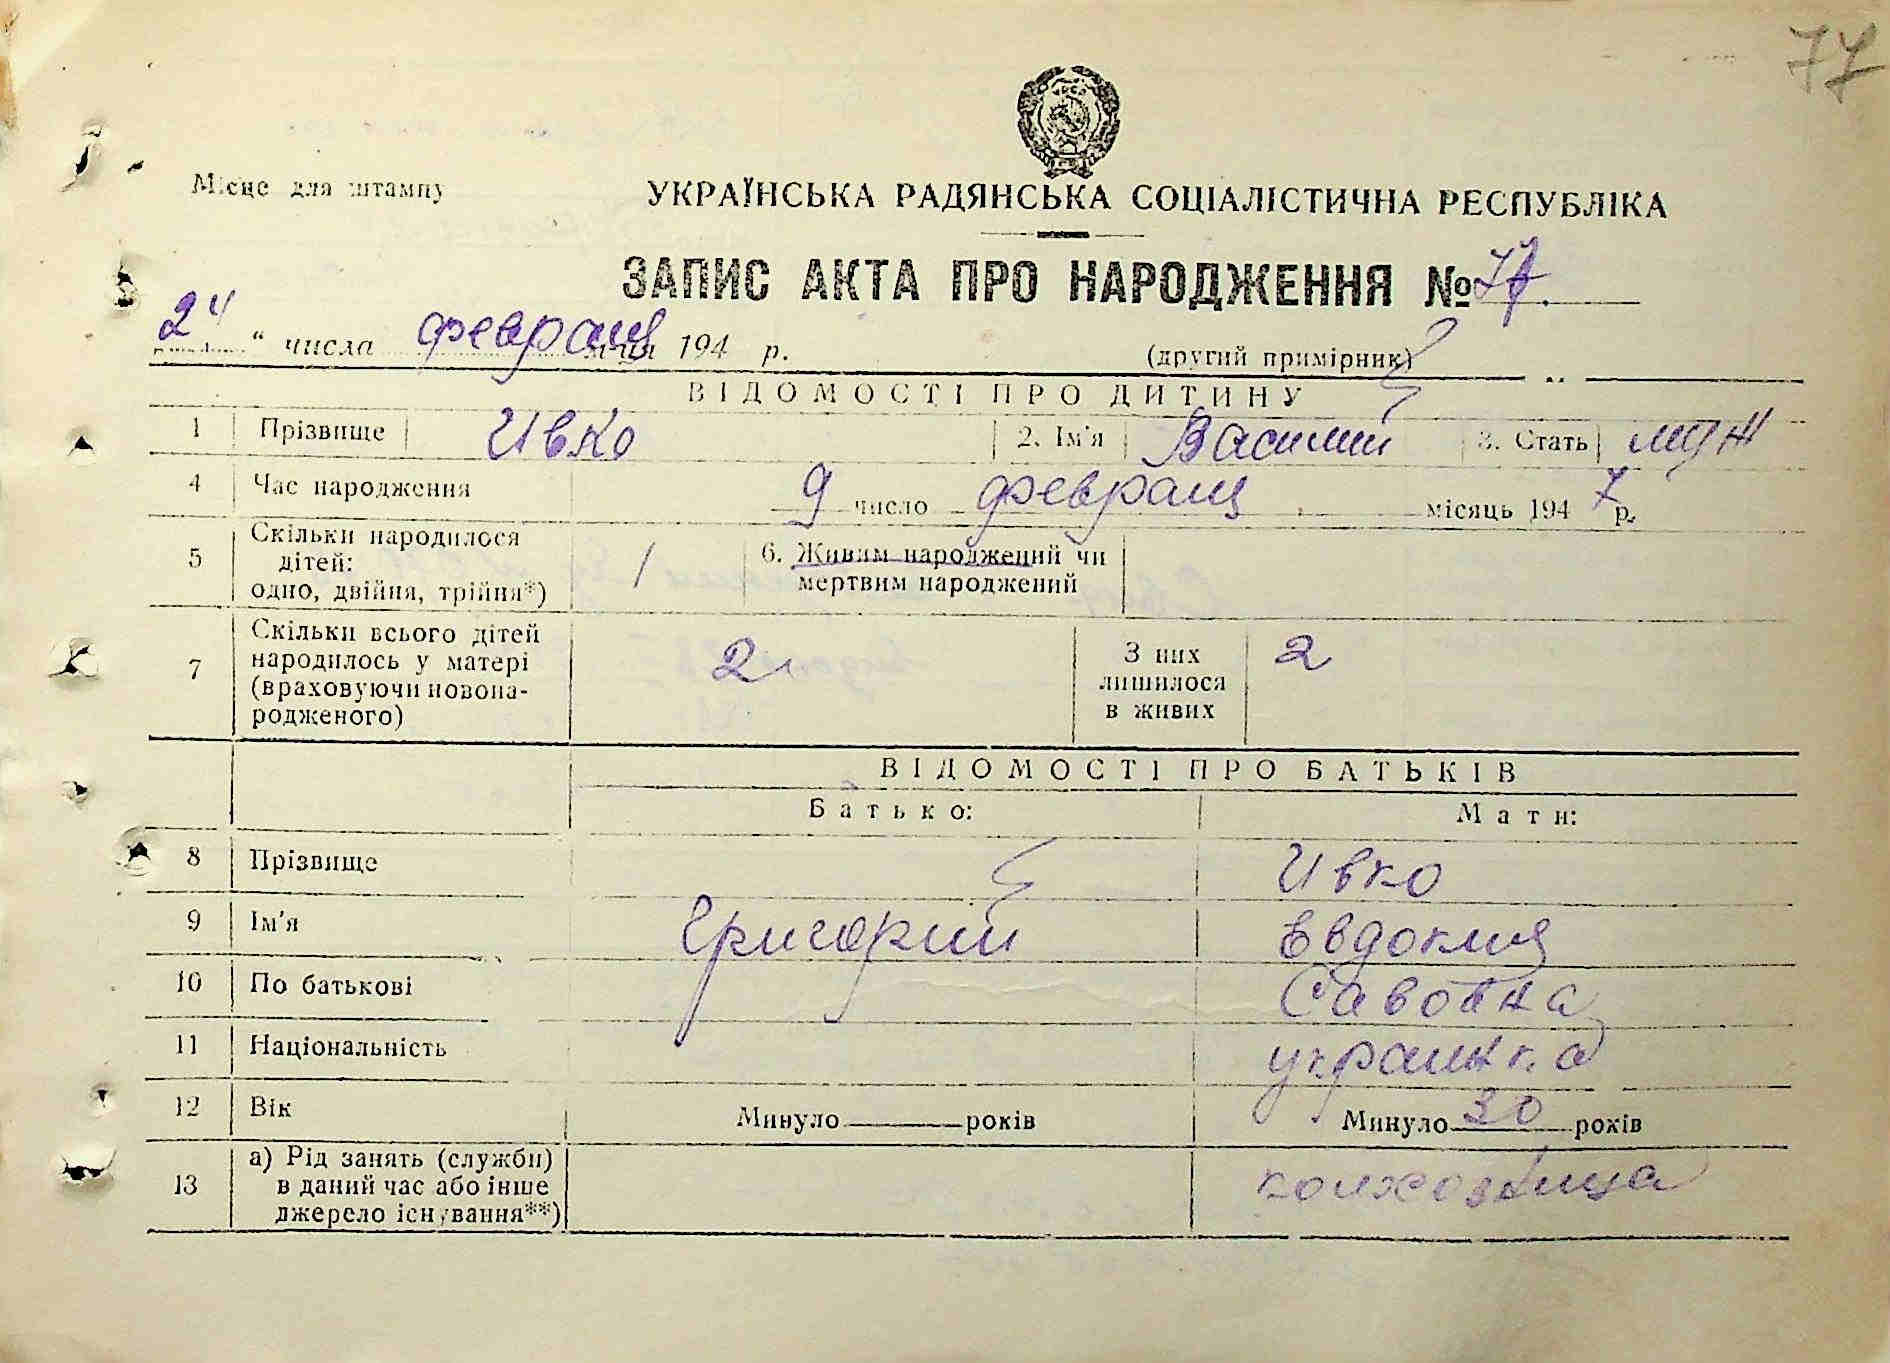 77
Місце для штампу
УКРАЇНСЬКА РАДЯНСЬКА СОЦІАЛІСТИЧНА РЕСПУБЛІКА
ЗАПИС АКТА ПРО НАРОДЖЕННЯ № 77.
24 " числа февраля м-ця 194 р.
(другий примірник)
ВІДОМОСТІ ПРО ДИТИНУ
1 Прізвище Ивко 2. Ім'я Василий 3. Стать муж
4 Час народження 9 число февраля місяць 1947 р.
5 Скільки народилося дітей: одно, двійня, трійня*) 1 6. Живим народжений чи мертвим народжений
7 Скільки всього дітей народилось у матері (враховуючи новонародженого) 2 З них лишилося в живих 2
ВІДОМОСТІ ПРО БАТЬКІВ
Батько: Мати:
8 Прізвище Ивко
9 Ім'я Григорий Евдокия
10 По батькові Савовна
11 Національність украинка
12 Вік Минуло років Минуло 30 років
13 а) Рід занять (служби) в даний час або інше джерело існування**) колхозница